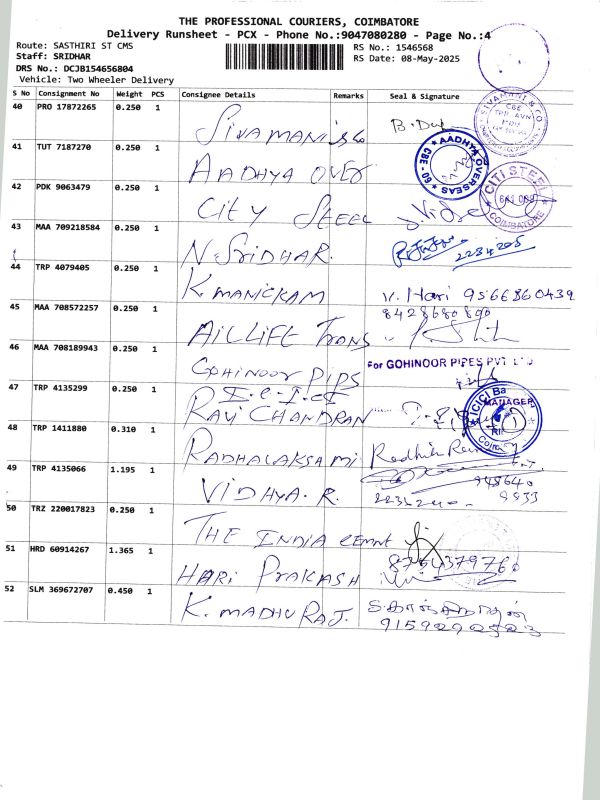 THE PROFESSIONAL COURIERS, COIMBATORE
Delivery Runsheet - PCX - Phone No.:9047080280 - Page No.:4
Route: SASTHIRI ST CMS
Staff: SRIDHAR
DRS No.: DCJB154656804
Vehicle: Two Wheeler Delivery
RS No.: 1546568
RS Date: 08-May-2025
S No Consignment No Weight PCS Consignee Details Remarks Seal & Signature
40 PRO 17872265 0.250 1 SIVAMANI & Co
41 TUT 7187270 0.250 1 AADHYA OVER AADHYA OVERSEAS CBE - 60
42 PDK 9063479 0.250 1 CITY STEEL CITI STEEL COIMBATORE
43 MAA 709218584 0.250 1 N. SRIDHAR.
44 TRP 4079405 0.250 1 K. MANICKAM V. Hari 9566860439
45 MAA 708572257 0.250 1 AILLIFT Trans 8428680800
46 MAA 708189943 0.250 1 GOHINOOR PIPS For GOHINOOR PIPES PVT LTD
47 TRP 4135299 0.250 1 RAVI CHANDRAN MANAGER
48 TRP 1411880 0.310 1 RADHALAKSAMI
49 TRP 4135066 1.195 1 VIDHYA. R.
50 TRZ 220017823 0.250 1 THE INDIA CEMNT
51 HRD 60914267 1.365 1 HARI PRAKASH 8754379760
52 SLM 369672707 0.450 1 K. MADHU RAJ.